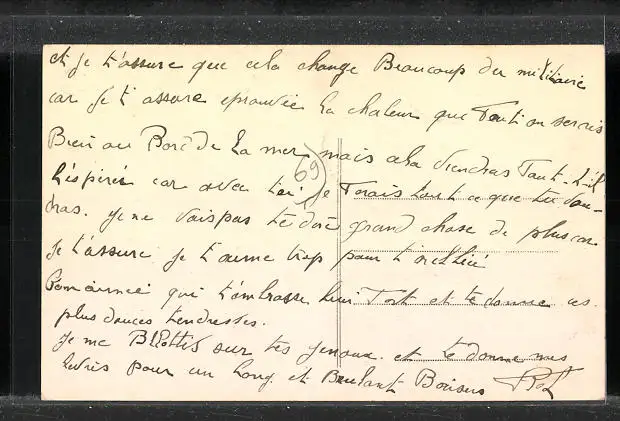 et je t'assure que cela change Beaucoup du militaire
car je t'assure eprouvée la chaleur que tout on serais
Bien au Bord de la mer mais cela viendras Faut-t-il
l'espérér car avec toi je ferais tout ce que tu vou-
dras. je ne vais pas te dire grand chose de plus car
je t'assure je t'aime trop pour t'oublié
69
qui t'embrasse bien Fort et te donne ces
plus douces tendresses.
je me Blottis sur tes genoux et te donne mes
lèvres pour un long et Brulant Baisers